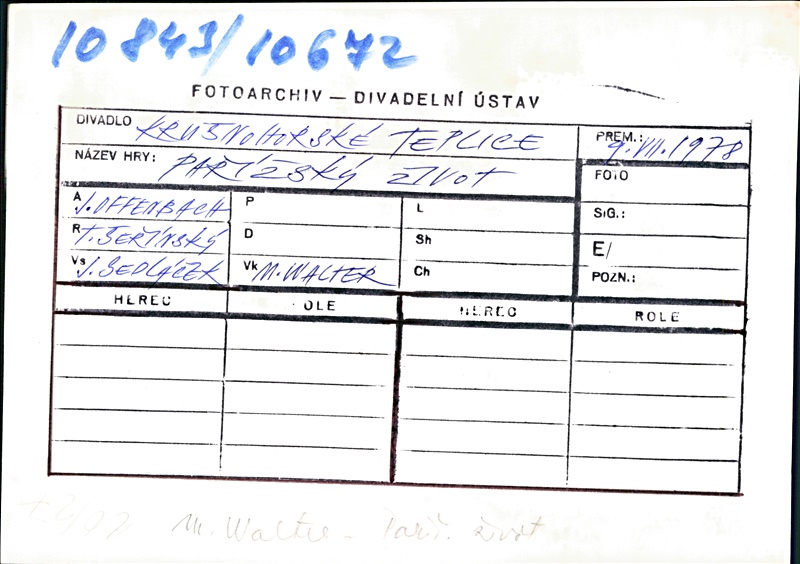 10843/10672
FOTOARCHIV — DIVADELNÍ ÚSTAV
DIVADLO KRUŠNOHORSKÉ TEPLICE
PREM.: 9.VII.1978
NÁZEV HRY: PAŘÍŽSKÝ ŽIVOT
FOTO
A J. OFFENBACH
P
L
SIG.:
R T. ŠEŘÍNSKÝ
D
Sh
E/
Vs J. SEDLÁČEK
Vk M. WALTER
Ch
POZN.:
HEREC OLE HEREC ROLE
M. Walter - Paříž. život